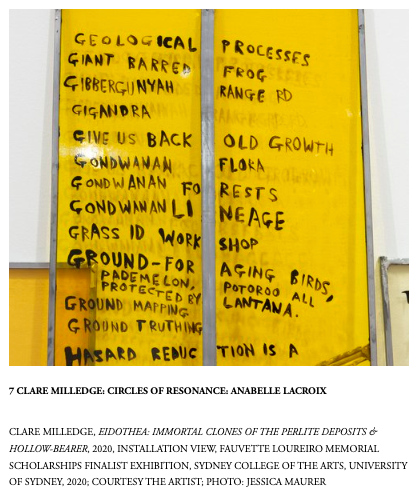 GEOLOGICAL PROCESSES
GIANT BARRED FROG
GIBBERGUNYAH RANGE RD
GIGANDRA
GIVE US BACK OLD GROWTH
GONDWANAN FLORA
GONDWANAN FORESTS
GONDWANAN LINEAGE
GRASS ID WORKSHOP
GROUND-FORAGING BIRDS,
PADEMELON, POTOROO ALL
PROTECTED BY LANTANA.
GROUND MAPPING
GROUND TRUTHING
HASARD REDUCTION IS A
7 CLARE MILLEDGE: CIRCLES OF RESONANCE: ANABELLE LACROIX
CLARE MILLEDGE, EIDOTHEA: IMMORTAL CLONES OF THE PERLITE DEPOSITS &
HOLLOW-BEARER, 2020, INSTALLATION VIEW, FAUVETTE LOUREIRO MEMORIAL
SCHOLARSHIPS FINALIST EXHIBITION, SYDNEY COLLEGE OF THE ARTS, UNIVERSITY
OF SYDNEY, 2020; COURTESY THE ARTIST; PHOTO: JESSICA MAURER